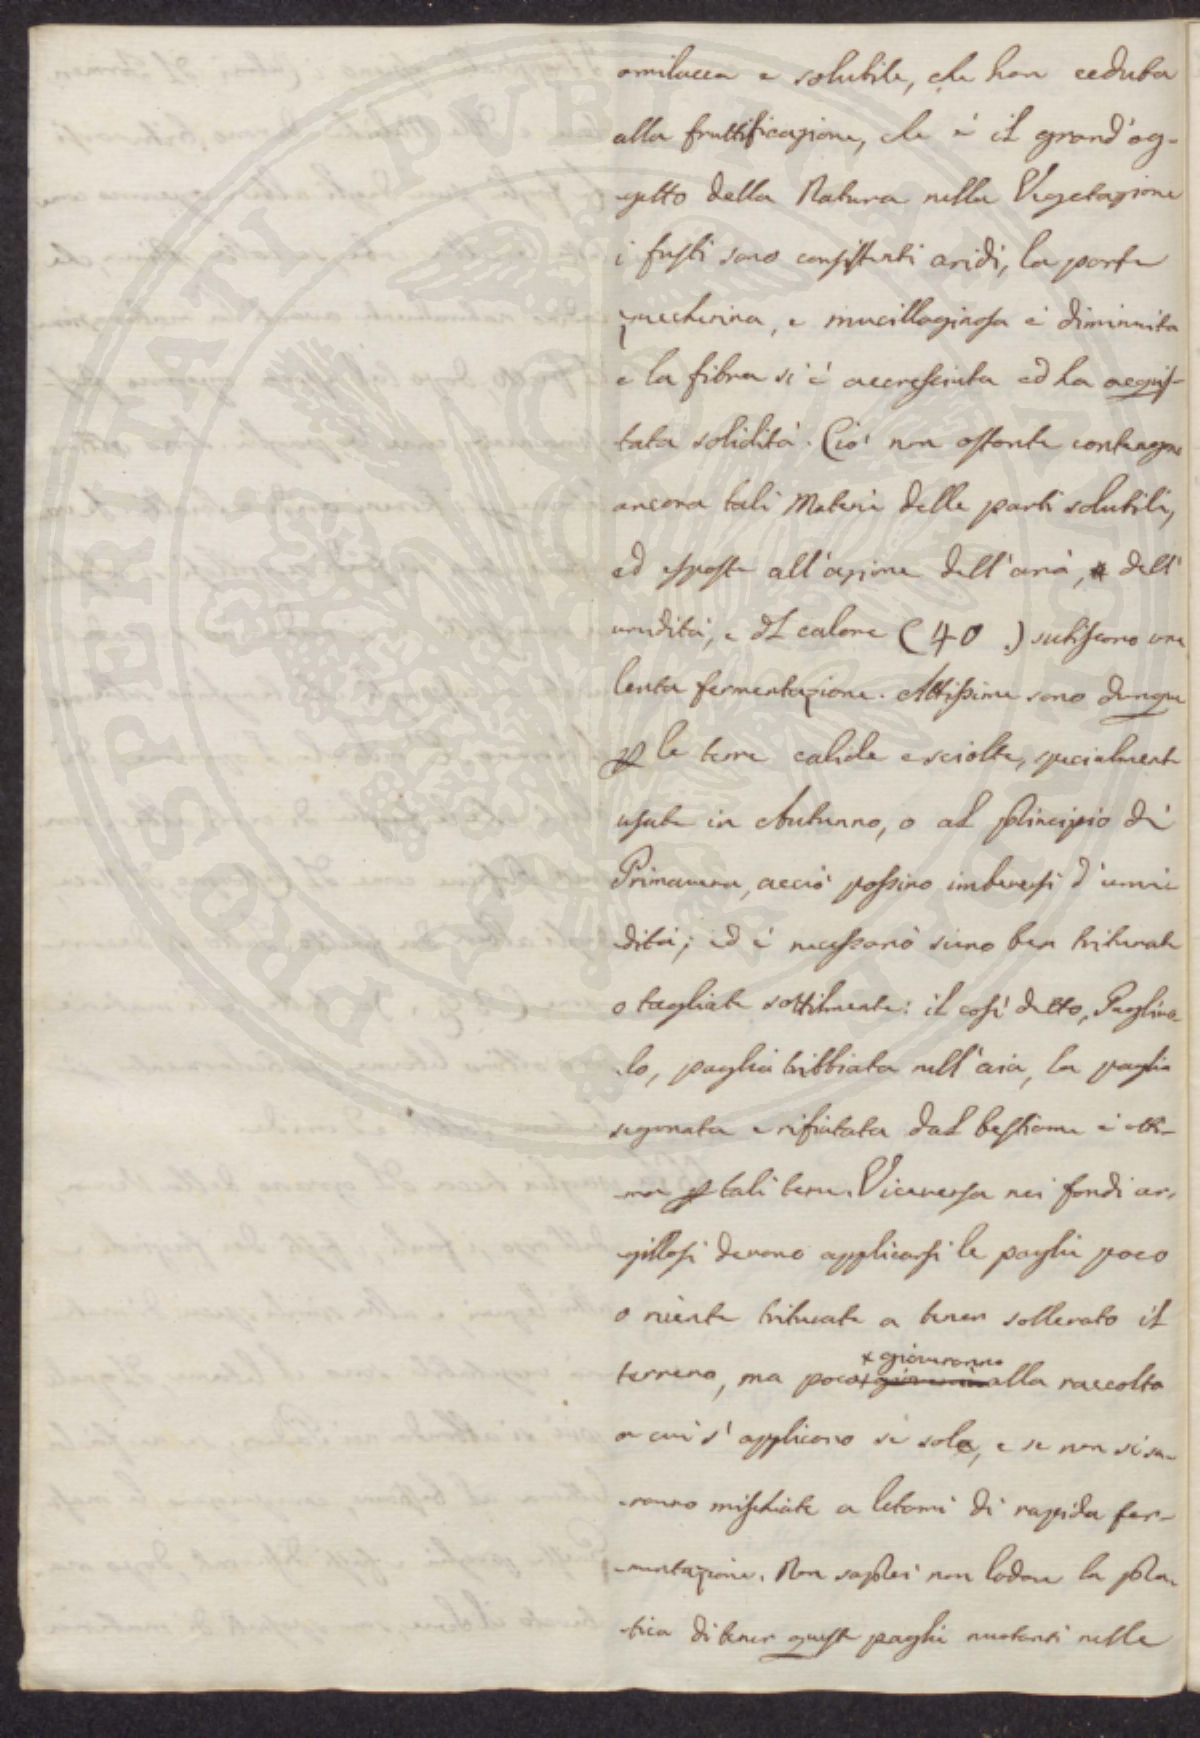 amilacea e solubile, che han ceduta
alla fruttificazione, che è il grand'og-
getto della Natura nella Vegetazione
i fusti sono consistenti aridi, la parte
zuccherina, e mucillaginosa è diminuita
e la fibra si è accresciuta ed ha acquis-
tata solidità. Ciò non ostante contengono
ancora tali Materie delle parti solubili,
ed esposte all'azione dell'aria, dell'
umidità, e del calore (40 .) subiscono una
lenta fermentazione. Attissime sono dunque
p le terre calide e sciolte, specialmente
usate in Autunno, o al principio di
Primavera, acciò possino imbeversi d'umi-
dità; ed è necessario sieno ben triturate
o tagliate sottilmente: il così detto, Pagliuo-
lo, paglia tribbiata nell'aia, la paglia
segonata e rifiutata dal bestiame è otti-
ma p tali terre. Viceversa nei fondi ar-
gillosi devono applicarsi le paglie poco
o niente triturate a tener sollevato il
terreno, ma poco + gioveranno alla raccolta
a cui s'applicano sè sole, e se non si sa-
ranno mischiate a letami di rapida fer-
mentazione. Non saprei non lodare la pra-
tica di tener queste paglie nuotanti nelle
PROSPERITATI PUBLICAE AUGENDAE